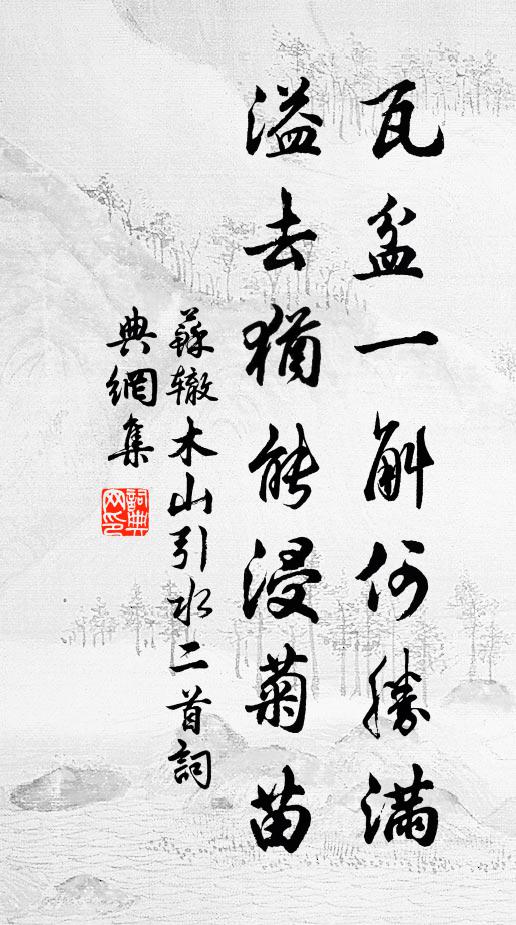 瓦盆一斛何勝滿
溢去猶能浸菊苗
蘇轍木山引水二首詞
典網集
詞典網印